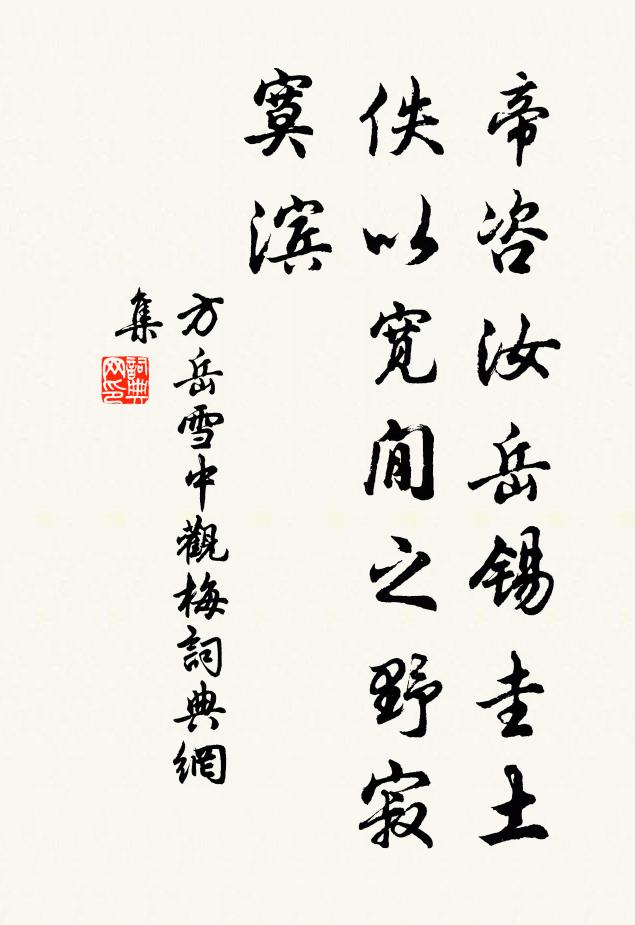 帝咨汝岳锡圭土
佚以宽閒之野寂
寞滨
方岳雪中觀梅詞典網
集
詞典
网印